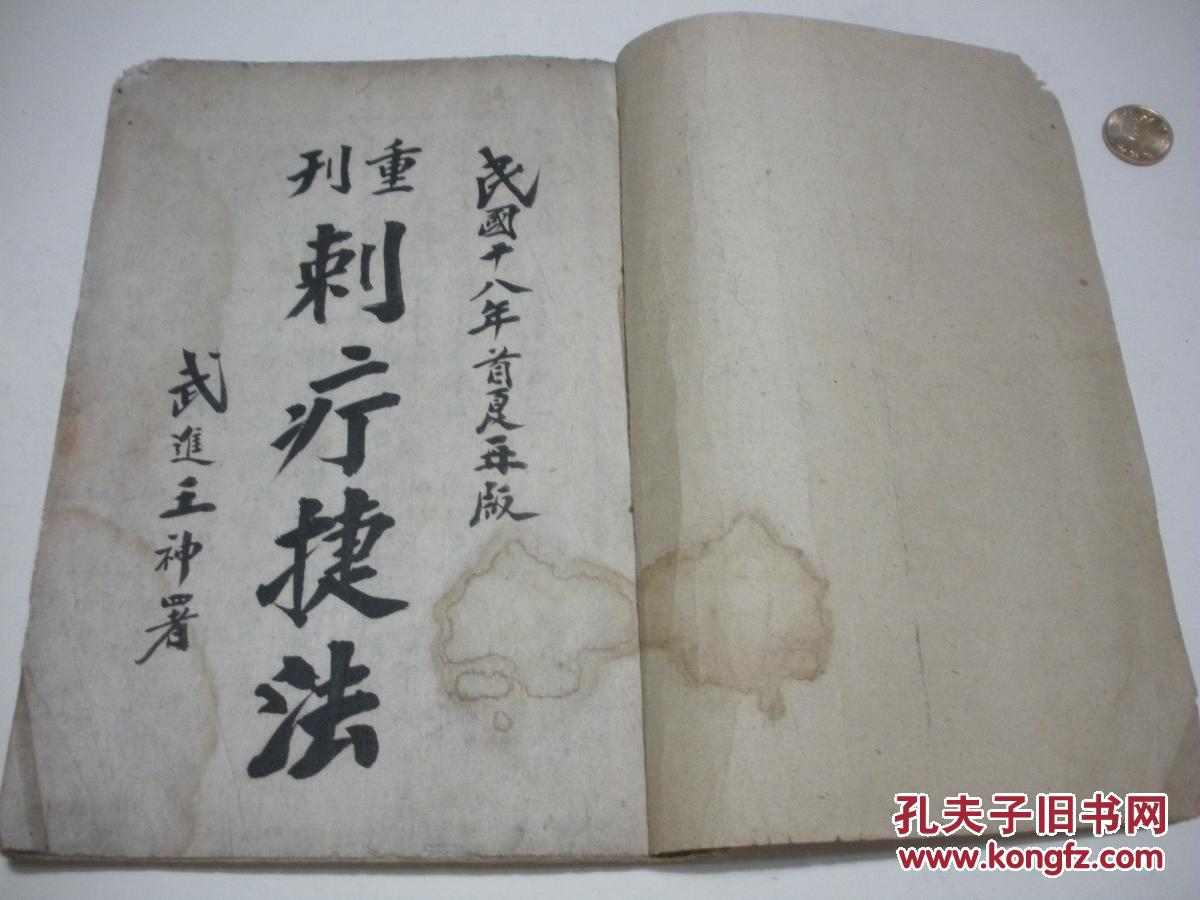 民國十八年首夏再版
重刊
刺疔捷法
武進王神署
孔夫子旧书网
www.kongfz.com